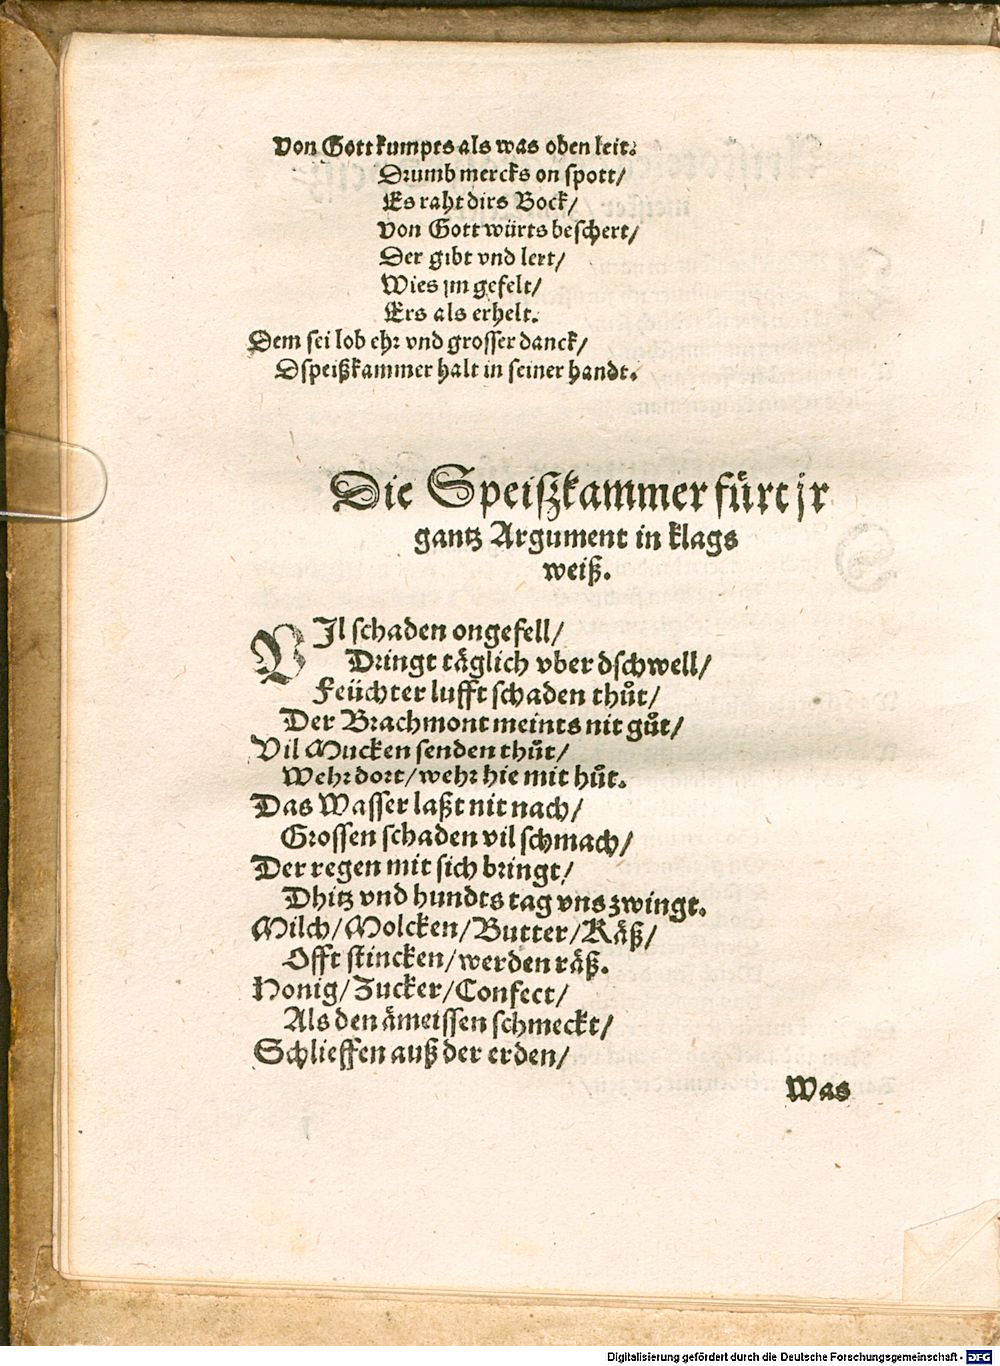 Von Gott kumpts als was oben leit.
Drumb mercks on spott/
Es raht dirs Bock/
Von Gott würts beschert/
Der gibt vnd lert/
Wies jm gefelt/
Ers als erhelt.
Dem sei lob ehr vnd grosser danck/
Dspeißkammer halt in seiner handt.
Die Speiszkammer fürt jr
gantz Argument in klags
weiß.
VIl schaden ongefell/
Dringt täglich vber dschwell/
Feüchter lufft schaden thůt/
Der Brachmont meints nit gůt/
Vil Mucken senden thůt/
Wehr dort/wehr hie mit hůt.
Das Wasser laßt nit nach/
Grossen schaden vil schmach/
Der regen mit sich bringt/
Dhitz vnd hundts tag vns zwingt.
Milch/Molcken/Butter/Käß/
Offt stincken/werden räß.
Honig/Zucker/Confect/
Als den ämeissen schmeckt/
Schlieffen auß der erden/
Was
Digitalisierung gefördert durch die Deutsche Forschungsgemeinschaft - DFG